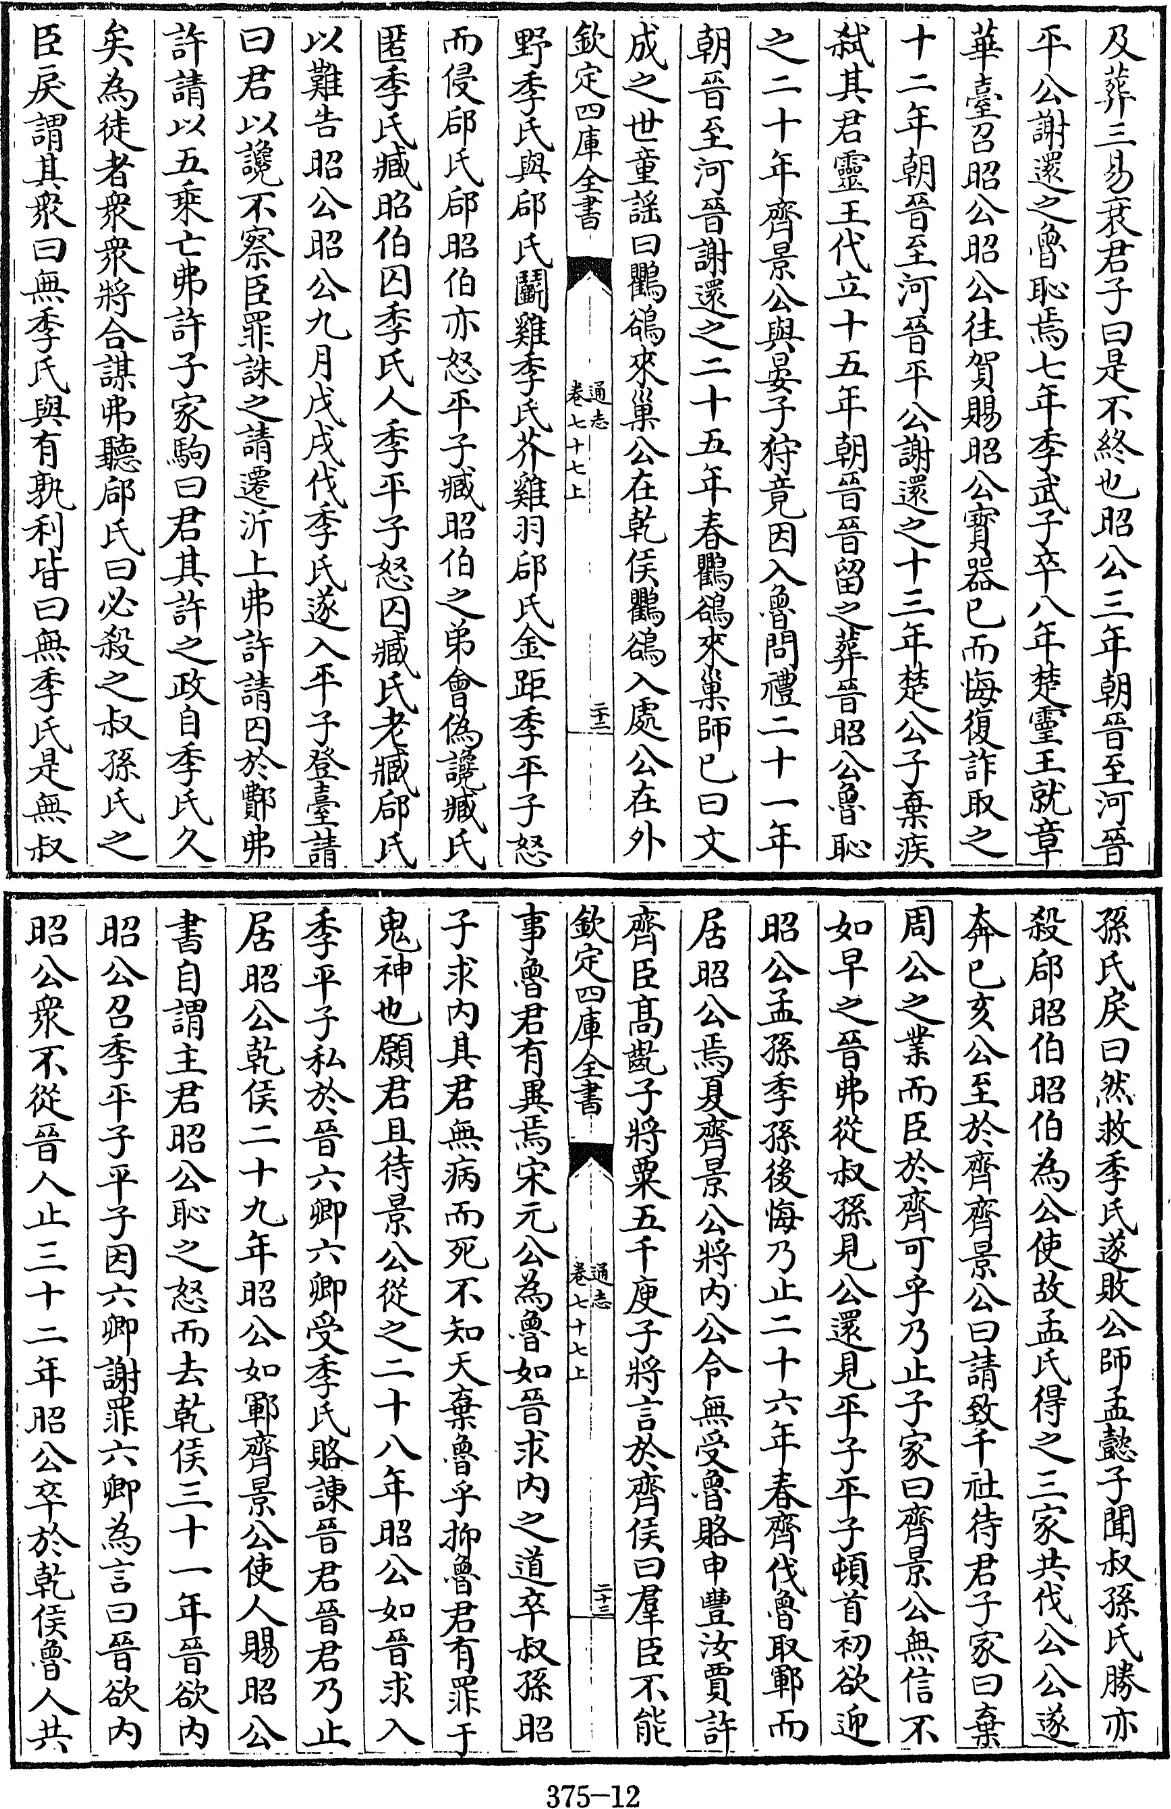 及葬三易衰君子曰是不終也昭公三年朝晉至河晉
平公謝還之魯恥焉七年季武子卒八年楚靈王就章
華臺召昭公昭公往賀賜昭公寶器已而悔復詐取之
十二年朝晉至河晉平公謝還之十三年楚公子棄疾
弑其君靈王代立十五年朝晉晉留之葬晉昭公魯恥
之二十年齊景公與晏子狩竟因入魯問禮二十一年
朝晉至河晉謝還之二十五年春鸜鵒來巢師已曰文
成之世童謡曰鸜鵒來巢公在乾侯鸜鵒入處公在外
欽定四庫全書
通志
卷七十七上
二十二
野季氏與郈氏鬭雞季氏芥雞羽郈氏金距季平子怒
而侵郈氏郈昭伯亦怒平子臧昭伯之弟會偽讒臧氏
匿季氏臧昭伯囚季氏人季平子怒囚臧氏老臧郈氏
以難告昭公昭公九月戊戌伐季氏遂入平子登臺請
曰君以讒不察臣罪誅之請遷沂上弗許請囚於鄪弗
許請以五乘亡弗許子家駒曰君其許之政自季氏久
矣為徒者衆衆將合謀弗聽郈氏曰必殺之叔孫氏之
臣戾謂其衆曰無季氏與有孰利皆曰無季氏是無叔
孫氏戾曰然救季氏遂敗公師孟懿子聞叔孫氏勝亦
殺郈昭伯昭伯為公使故孟氏得之三家共伐公公遂
奔已亥公至於齊齊景公曰請致千社待君子家曰棄
周公之業而臣於齊可乎乃止子家曰齊景公無信不
如早之晉弗從叔孫見公還見平子平子頓首初欲迎
昭公孟孫季孫後悔乃止二十六年春齊伐魯取鄆而
居昭公焉夏齊景公將内公令無受魯賂申豐汝賈許
齊臣高齕子將粟五千庾子將言於齊侯曰羣臣不能
欽定四庫全書
通志
卷七十七上
二十三
事魯君有異焉宋元公為魯如晉求内之道卒叔孫昭
子求内其君無病而死不知天棄魯乎抑魯君有罪于
鬼神也願君且待景公從之二十八年昭公如晉求入
季平子私於晉六卿六卿受季氏賂諫晉君晉君乃止
居昭公乾侯二十九年昭公如鄆齊景公使人賜昭公
書自謂主君昭公恥之怒而去乾侯三十一年晉欲内
昭公召季平子平子因六卿謝罪六卿為言曰晉欲内
昭公衆不從晉人止三十二年昭公卒於乾侯魯人共
375-12